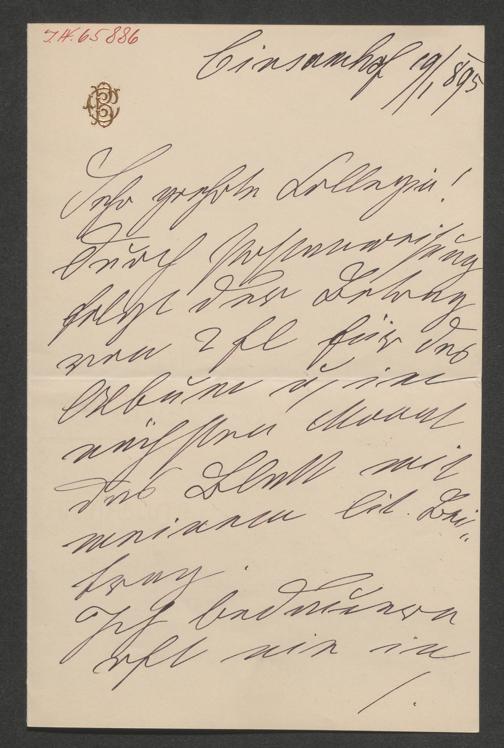 I.N. 65886
Einsamhof 19/1 895
BS
Sehr geehrte Collegin!
Durch Postanweisung
folgt der Betrag
von 2 fl für das
Album u. im
nächsten Monat
das Blatt mit
meinem lit. Bei„
trag.
Ich bedauere
oft nie in
/.